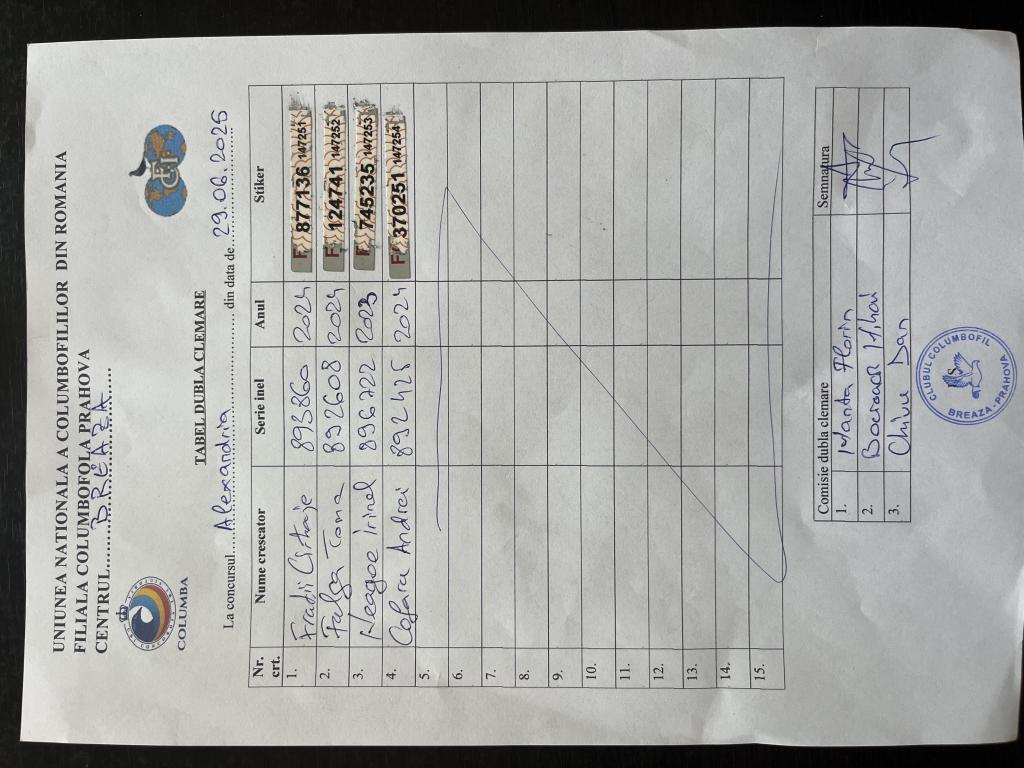 UNIUNEA NATIONALA A COLUMBOFILILOR DIN ROMANIA
FILIALA COLUMBOFOLA PRAHOVA
CENTRUL BREAZA
COLUMBA
FCI
TABEL DUBLA CLEMARE
La concursul Alexandria din data de 29.06.2025
Nr. crt. Nume crescator Serie inel Anul Stiker
1. Fratii 893860 2024 F 877136 147251
2. Falga Toma 892608 2024 F 124741 147252
3. Neagoe Irinel 896722 2023 F 745235 147253
4. Cofaru Andrei 892425 2024 F 370251 147254
5.
6.
7.
8.
9.
10.
11.
12.
13.
14.
15.
Comisie dubla clemare Semnatura
1. Manta Florin
2. Mihai
3. Chivu Dan
CLUBUL COLUMBOFIL
BREAZA - PRAHOVA